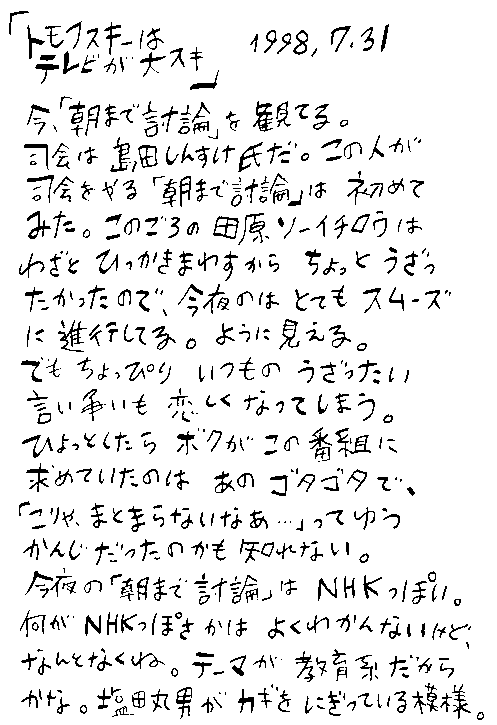 「トモフスキーは 1998,7.31
テレビが大スキ」
今、「朝まで討論」を観てる。
司会は島田しんすけ氏だ。この人が
司会をやる「朝まで討論」は初めて
みた。このごろの田原ソーイチロウは
わざとひっかきまわすからちょっとうざっ
たかったので、今夜のはとてもスムーズ
に進行してる。ように見える。
でもちょっぴりいつものうざったい
言い争いも恋しくなってしまう。
ひょっとしたらボクがこの番組に
求めていたのはあのゴタゴタで、
「こりゃ、まとまらないなあ…」ってゆう
かんじだったのかも知れない。
今夜の「朝まで討論」はNHKっぽい。
何がNHKっぽさかはよくわかんないけど、
なんとなくね。テーマが教育系だから
かな。塩田丸男がカギをにぎっている模様。